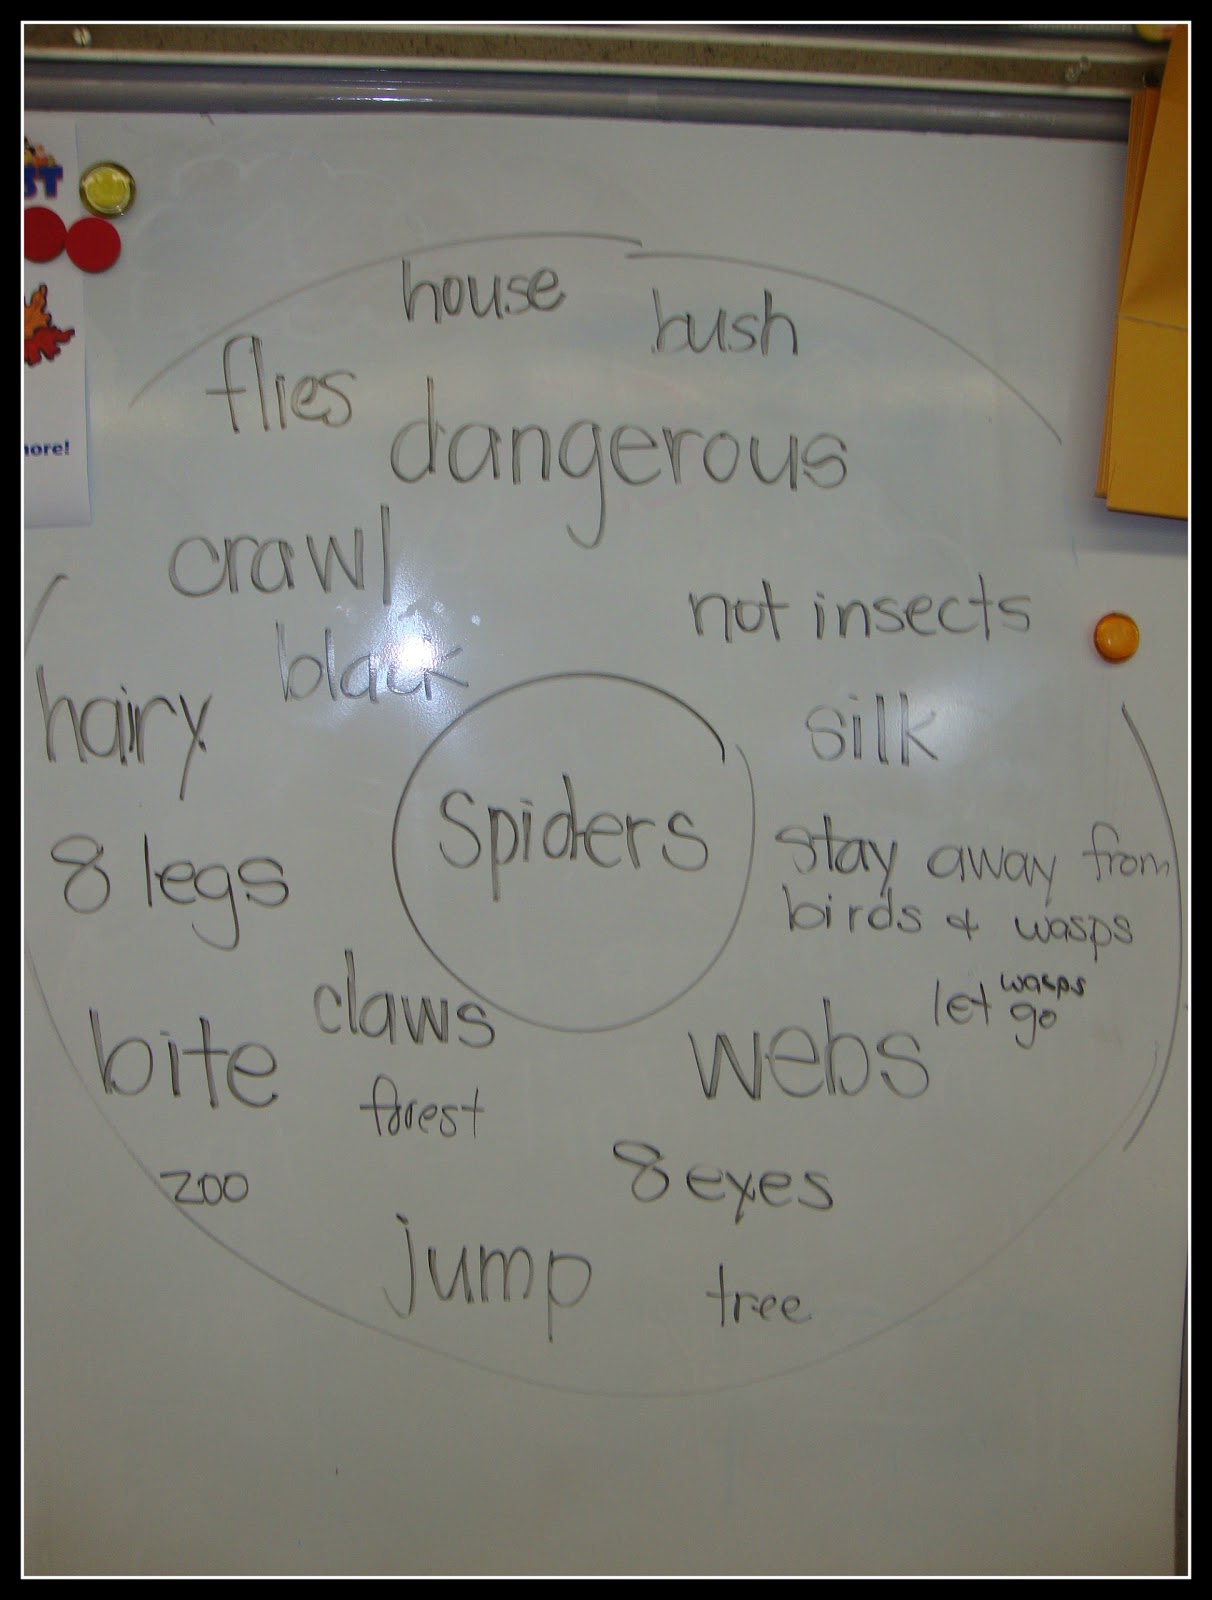 ST
ore!
house
bush
flies
dangerous
crawl
not insects
black
hairy
silk
Spiders
8 legs
stay away from
birds & wasps
let wasps
go
claws
bite
webs
forest
8 eyes
zoo
jump
tree